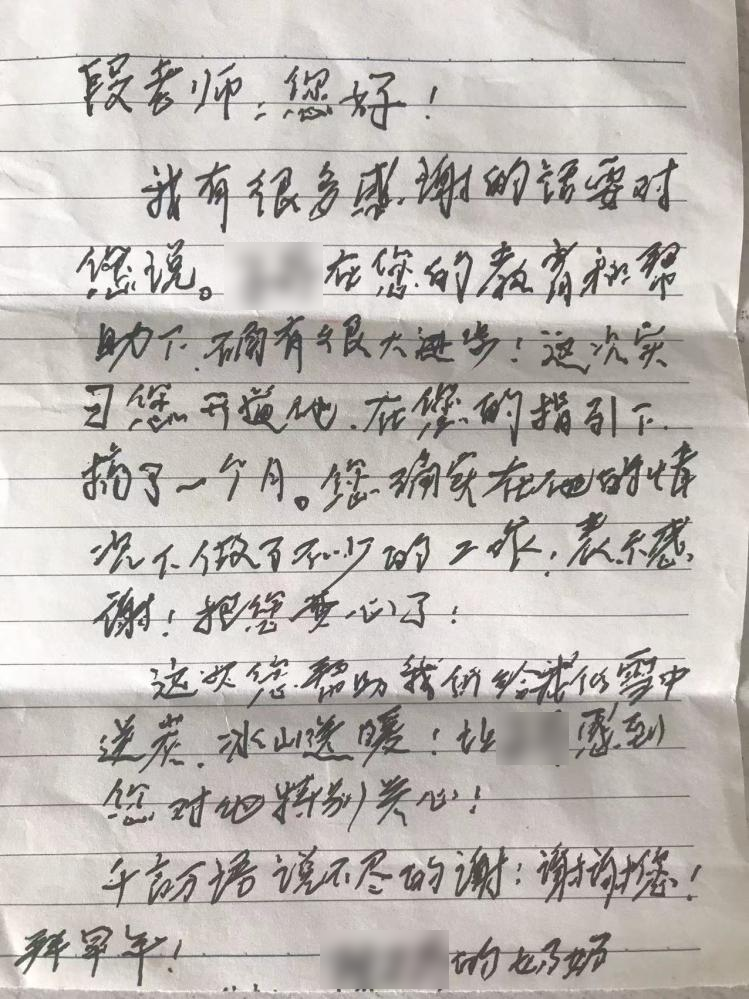 段老师:您好!
我有很多感谢的话要对
您说。在您的教育和帮
助下,确有很大进步!这次实
习您开道他,在您的指引下,
搞了一个月。您确实在他的情
况下做了不少的工作,表示感
谢!把您费心了!
这次您帮助我们给我们雪中
送炭,冰山送暖!让感到
您对他特别关心!
千言万语说不尽的谢!谢谢您!
拜早年!
的奶奶